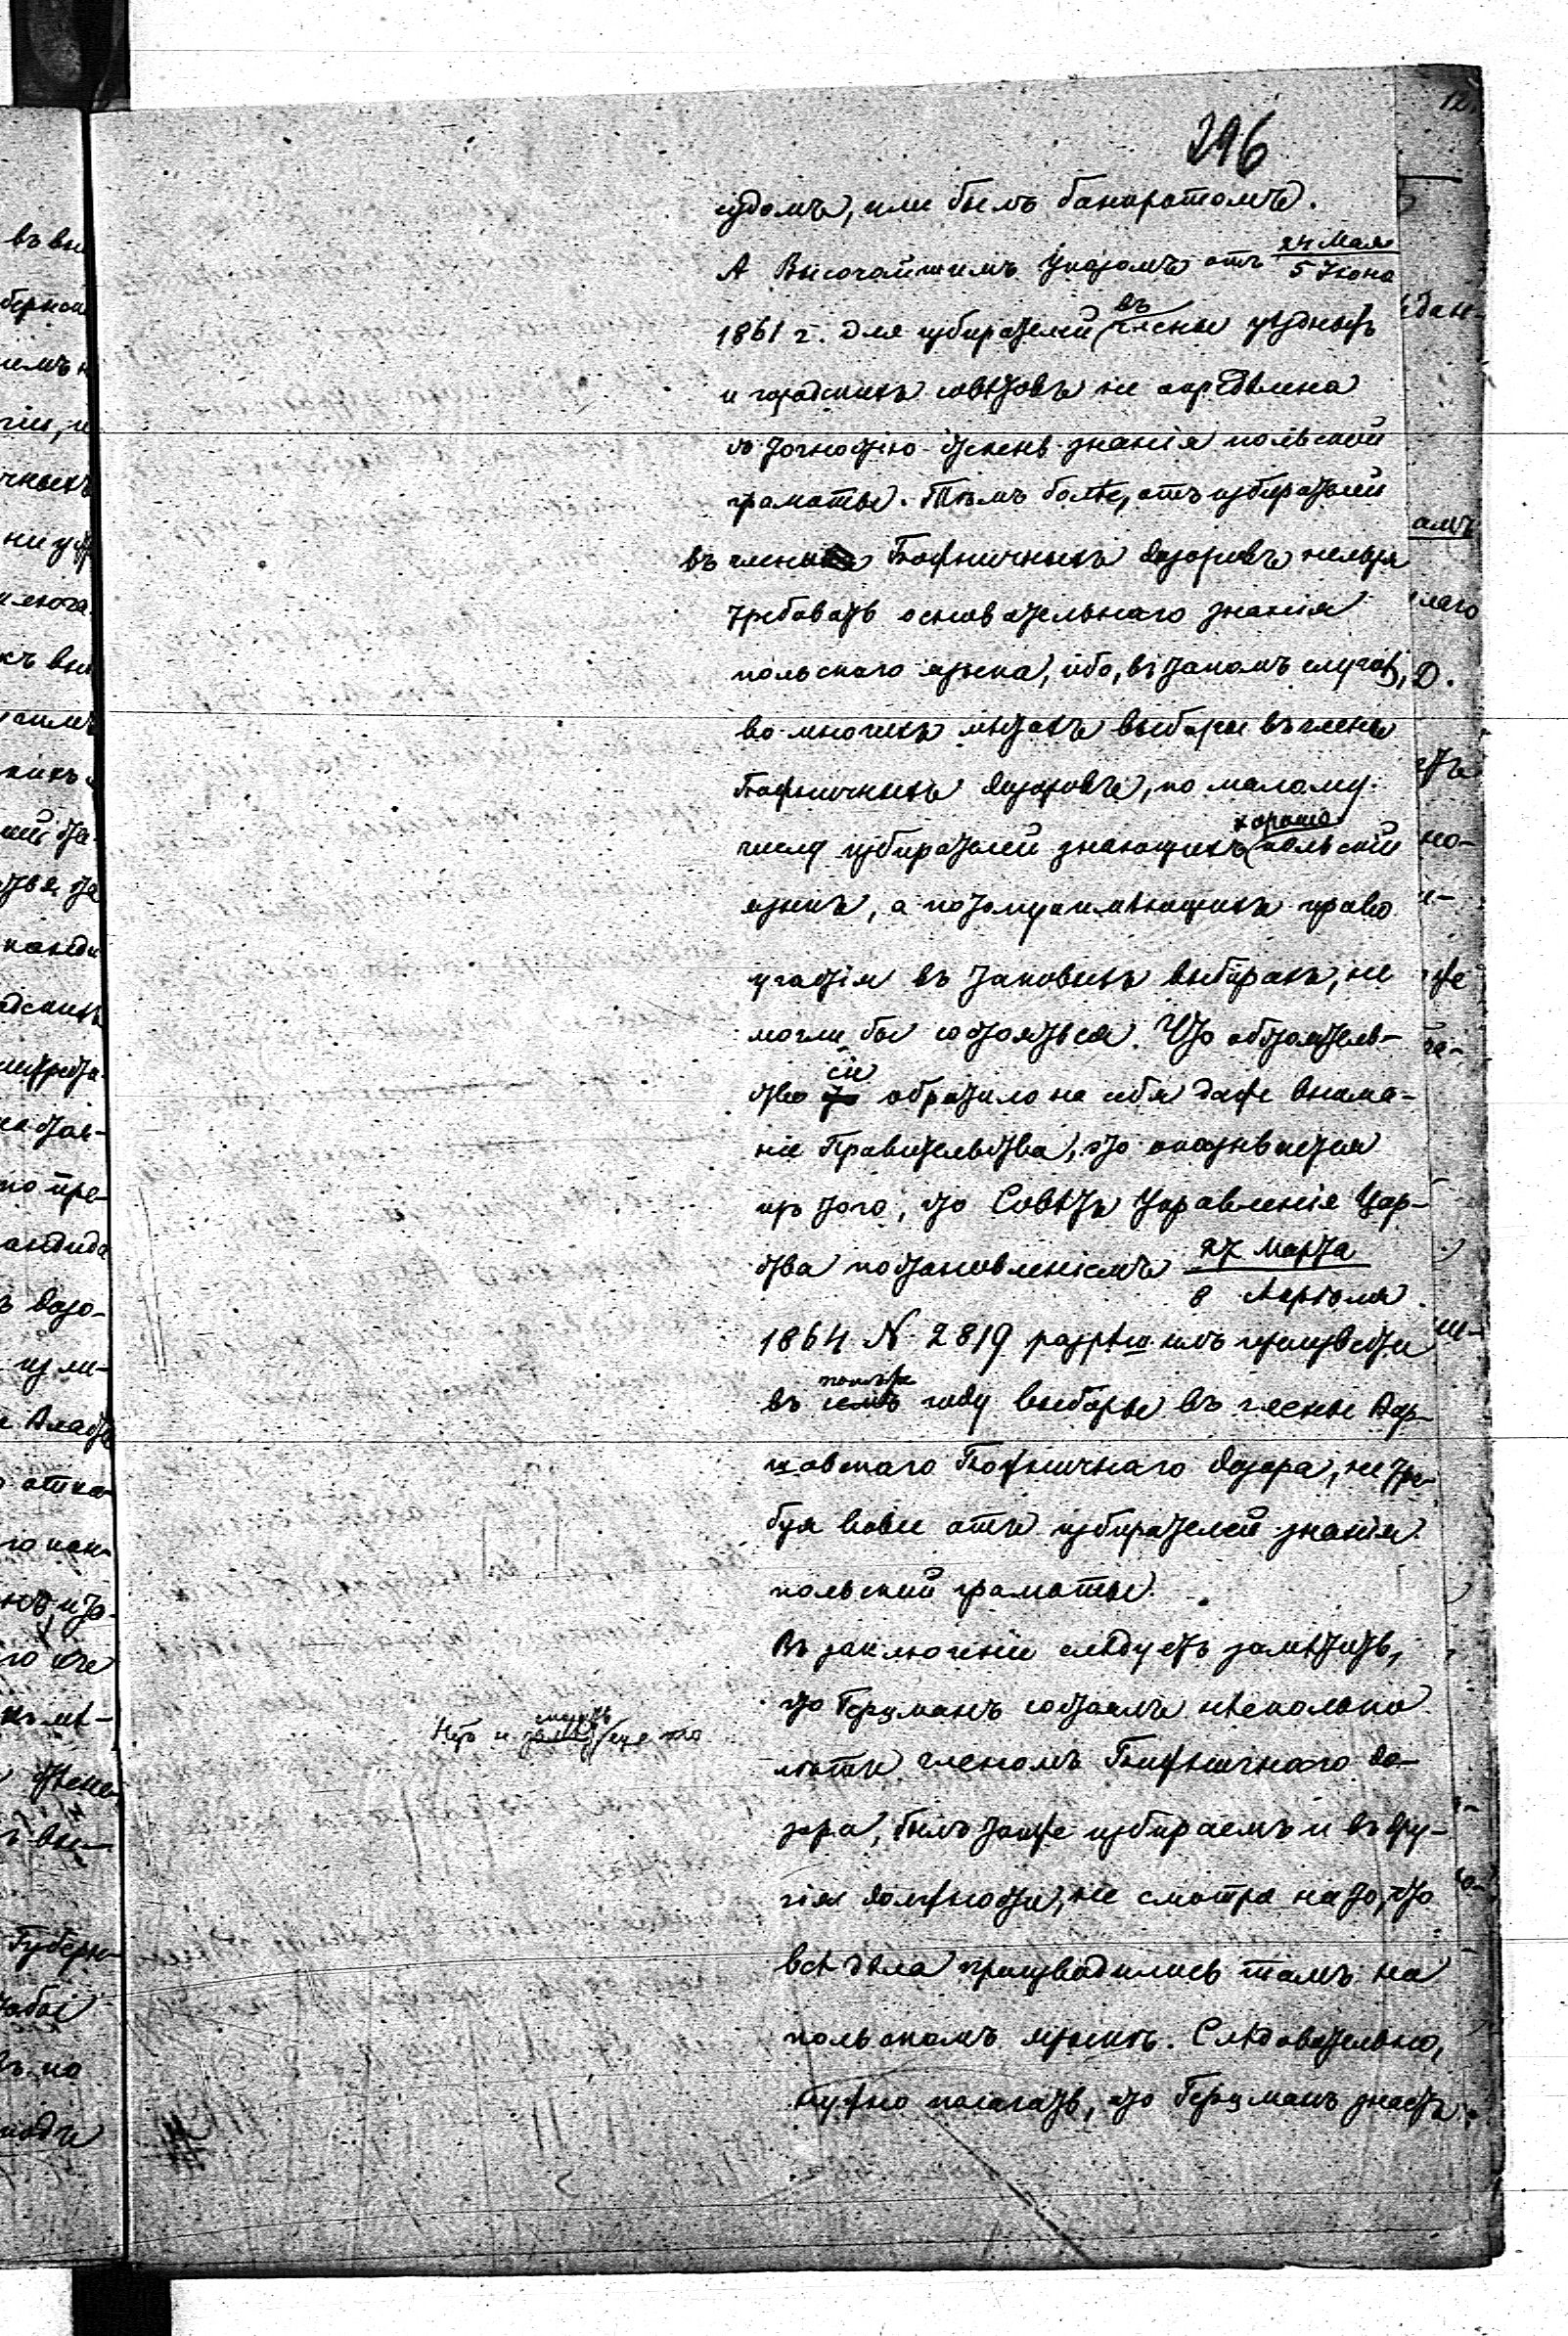 296
судомъ, или былъ банкротомъ.
А Высочайшимъ Указомъ отъ 24 Мая / 5 Іюня
1861 г. для избирателей въ члены уѣздныхъ
и городскихъ совѣтовъ не опредѣлена
съ точностію степень знанія польской
грамоты. Тѣмъ болѣе, отъ избирателей
въ члены Божничныхъ дозоровъ нельзя
требовать основательнаго знанія
польскаго языка, ибо, въ такомъ случаѣ,
во многихъ мѣстахъ выборы въ члены
Божничныхъ дозоровъ, по малому
числу избирателей знающихъ хорошо польскій
языкъ, а потому имѣющихъ право
участія въ таковыхъ выборахъ, не
могли бы состояться. Что обстоятель-
ство сіе обратило на себя даже внима-
ніе Правительства, это оказывается
изъ того, что Совѣтъ Управленія Цар-
ства постановленіемъ 27 Марта / 8 Апрѣля
1864 N 2819 разрѣшилъ произвести
въ томъ же году выборы въ члены Вар-
шавскаго Божничнаго дозора, не тре-
буя вовсе отъ избирателей знанія
польской грамоты.
Въ заключеніе слѣдуетъ замѣтить,
что Герцманъ состоялъ нѣсколько
лѣтъ членомъ Божничнаго до-
зора, былъ также избираемъ и въ дру-
гія должности, не смотря на то, что
всѣ дѣла производились тамъ на
польскомъ языкѣ. Слѣдовательно,
нужно полагать, что Герцманъ знаетъ